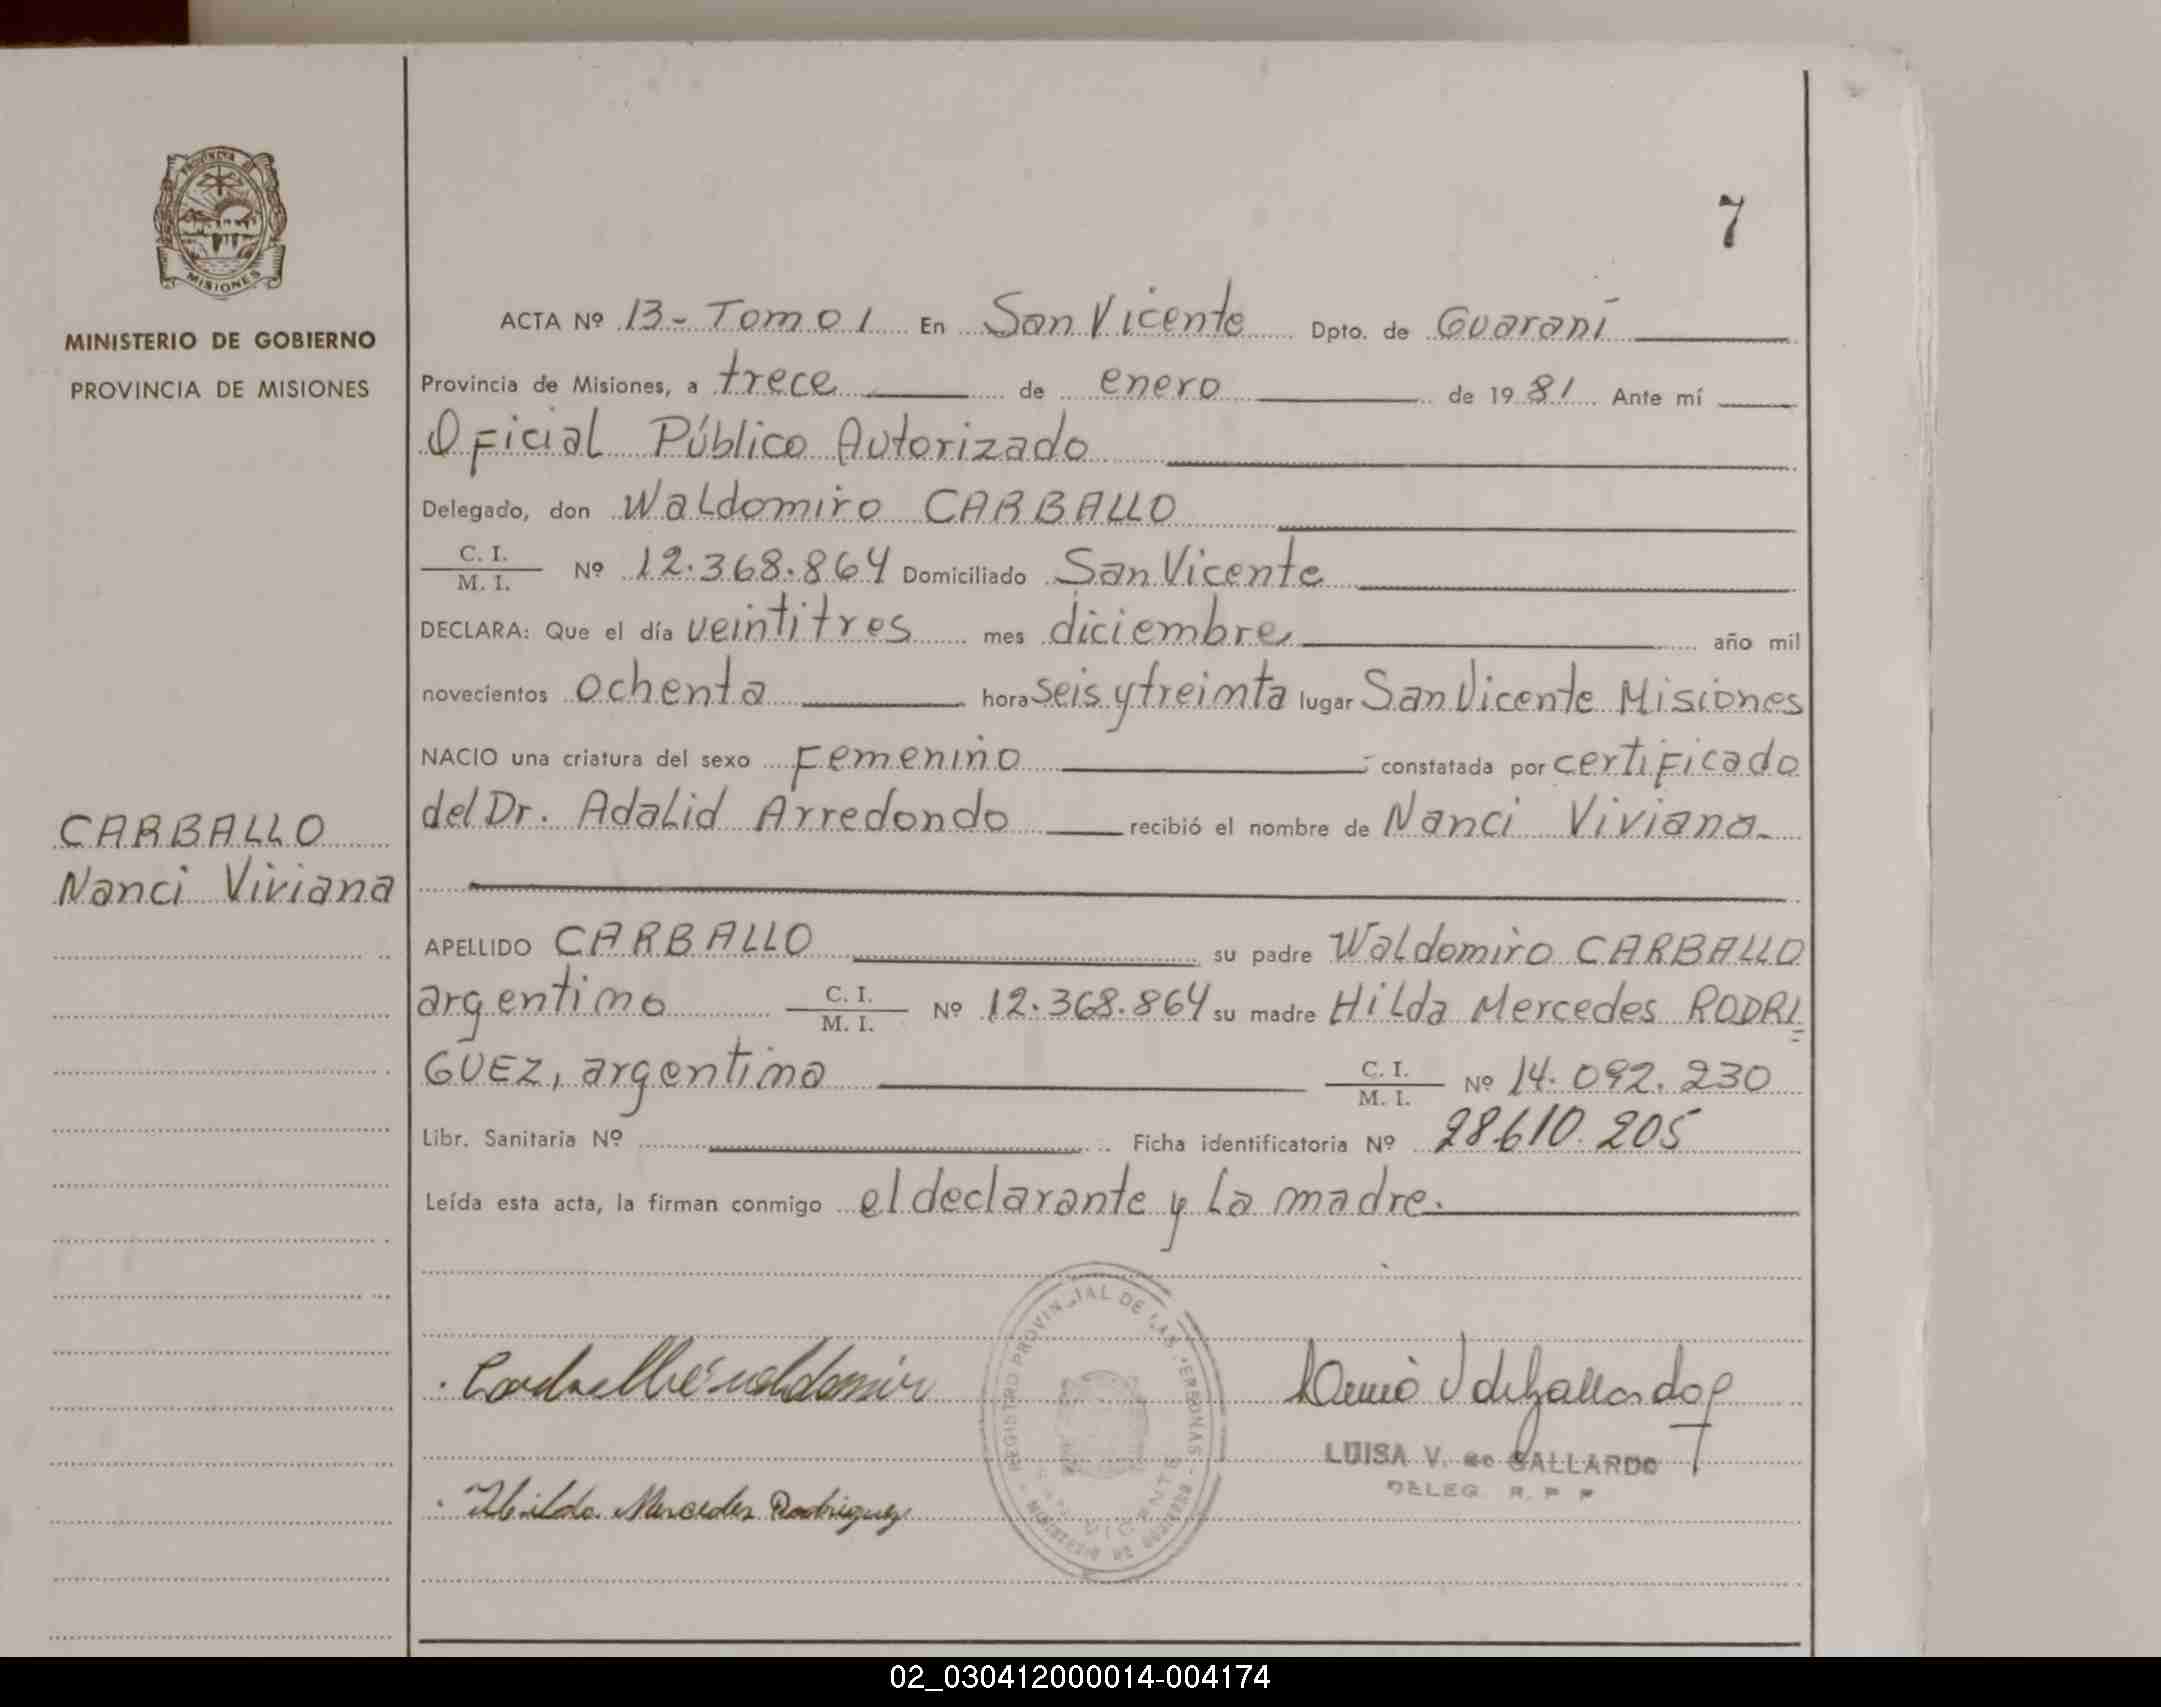 7
PROVINCIA DE
MISIONES
MINISTERIO DE GOBIERNO
PROVINCIA DE MISIONES
ACTA Nº 13 - Tomo 1 En San Vicente Dpto. de Guaraní
Provincia de Misiones, a trece de enero de 1981 Ante mí
Oficial Público Autorizado
Delegado, don Waldomiro CARBALLO
C. I.
M. I. Nº 12.368.864 Domiciliado San Vicente
DECLARA: Que el día veintitres mes diciembre año mil
novecientos ochenta hora seis y treimta lugar San Vicente Misiones
NACIO una criatura del sexo Femenino constatada por certificado
del Dr. Adalid Arredondo recibió el nombre de Nanci Viviana
CARBALLO
Nanci Viviana
APELLIDO CARBALLO su padre Waldomiro CARBALLO
argentimo C. I.
M. I. Nº 12.368.864 su madre Hilda Mercedes RODRI=
GUEZ, argentima C. I.
M. I. Nº 14.092.230
Libr. Sanitaria Nº Ficha identificatoria Nº 28.610.205
Leída esta acta, la firman conmigo el declarante y la madre.
REGISTRO PROVINCIAL DE LAS PERSONAS
MINISTERIO DE GOBIERNO
SAN VICENTE
LUISA V. de GALLARDO
DELEG. R. P. P.
Hilda Mercedes Rodriguez
02_030412000014-004174